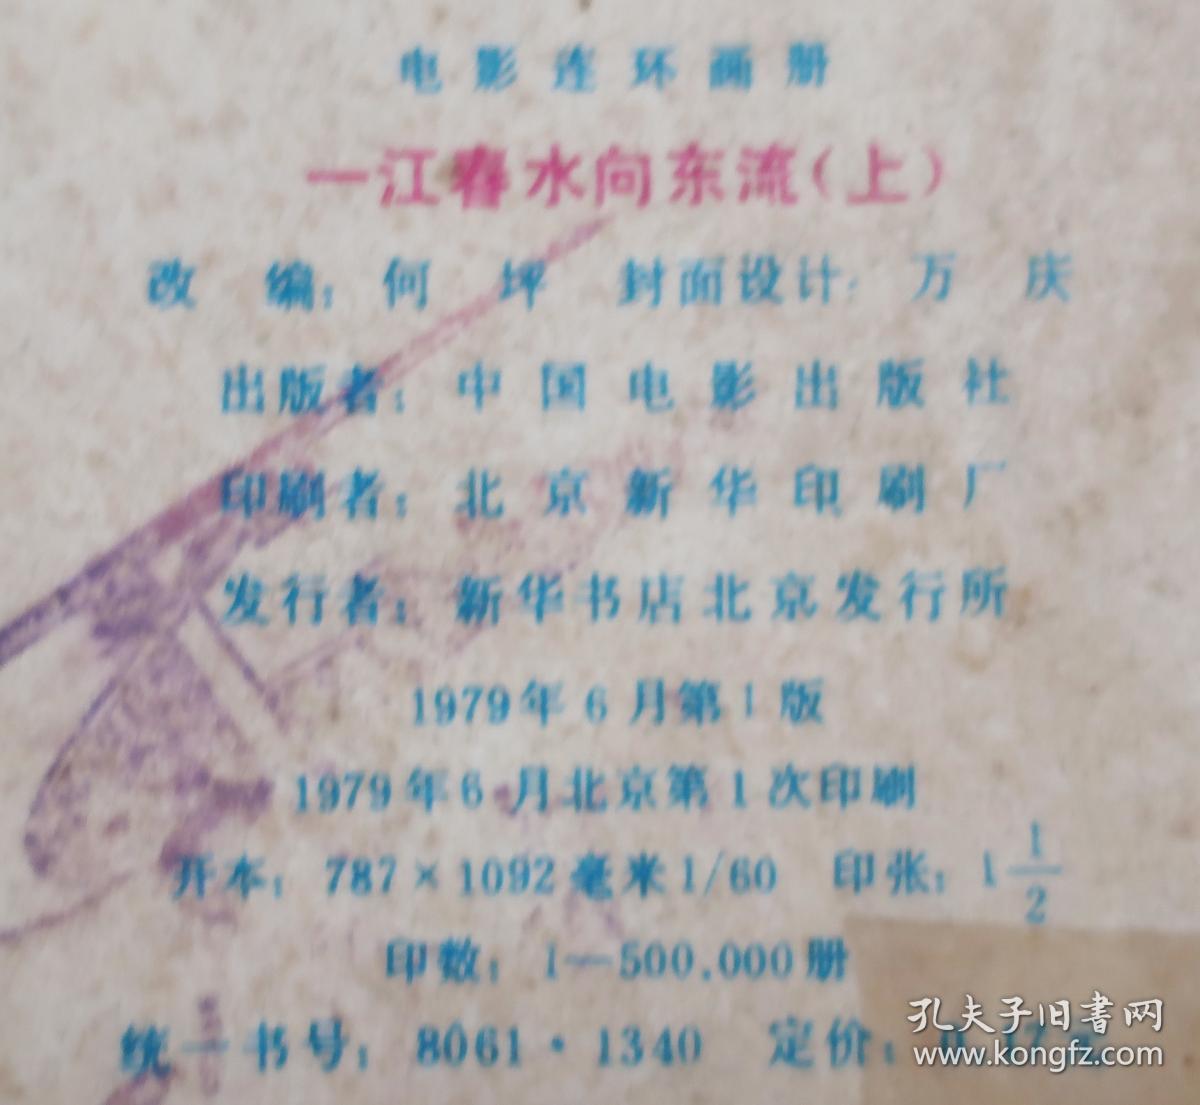 电影连环画册
一江春水向东流(上)
改 编：何 坪 封面设计：万 庆
出版者：中国电影出版社
印刷者：北京新华印刷厂
发行者：新华书店北京发行所
1979年6月第1版
1979年6月北京第1次印刷
开本：787×1092毫米1/60 印张：1 1/2
印数：1—500.000册
统一书号：8061·1340 定价：
孔夫子旧书网
www.kongfz.com